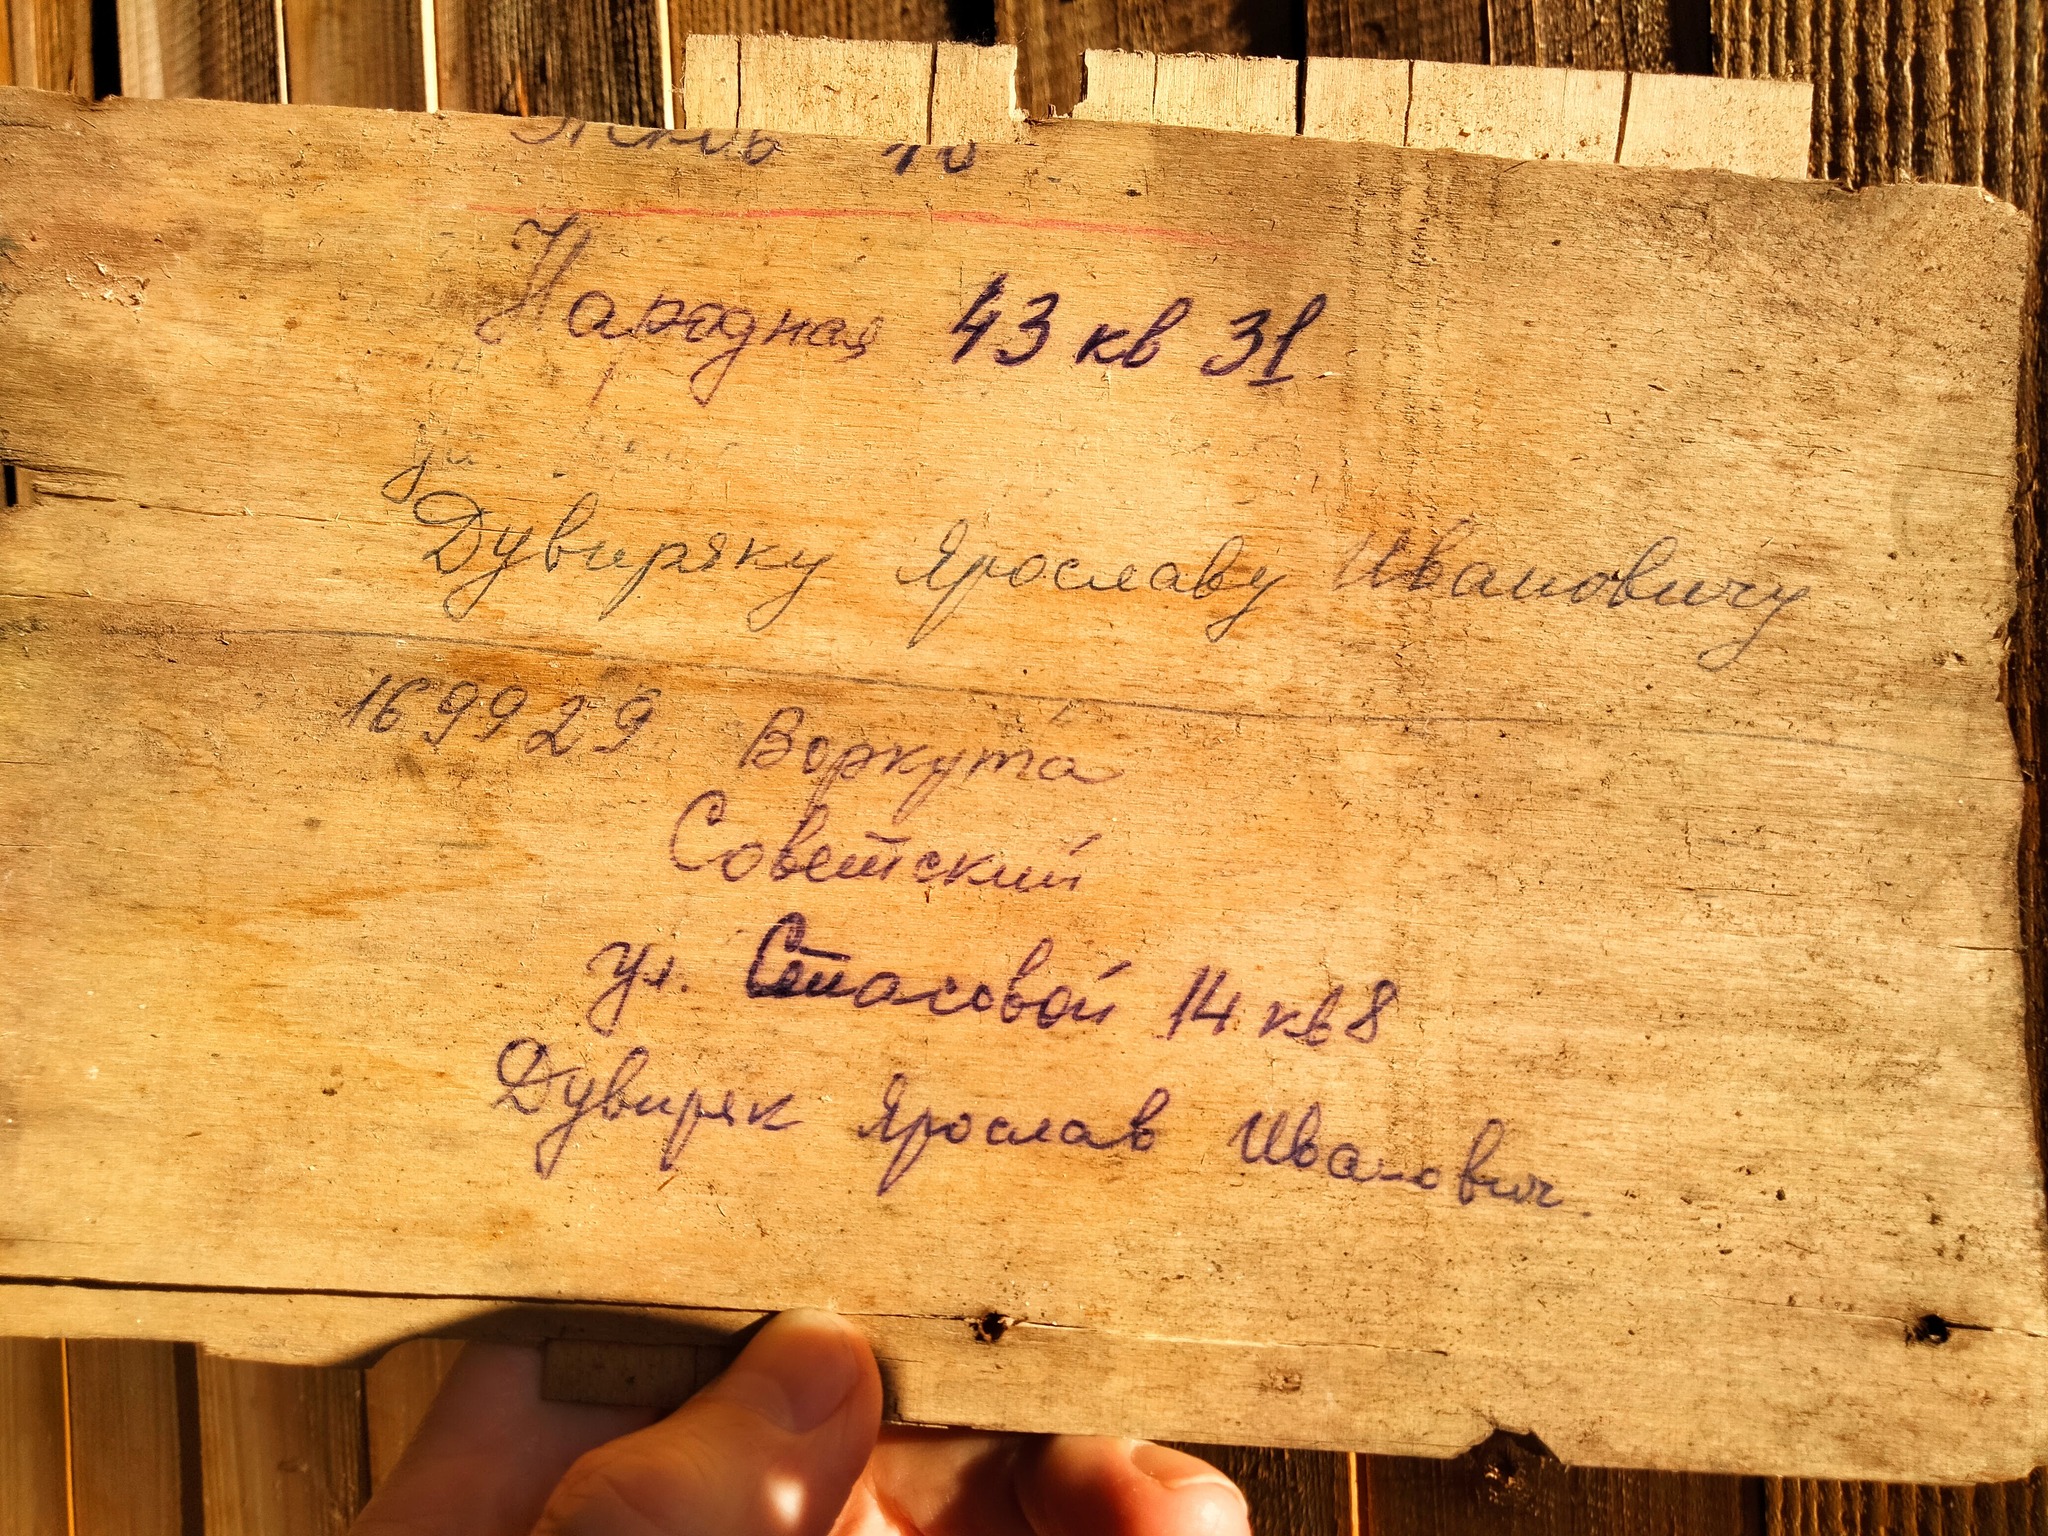 Народная 43 кв 31.
ул.
Дувиряку Ярославу Ивановичу
169929 Воркута
Советский
ул. Стасовой 14 кв 8
Дувиряк Ярослав Иванович.